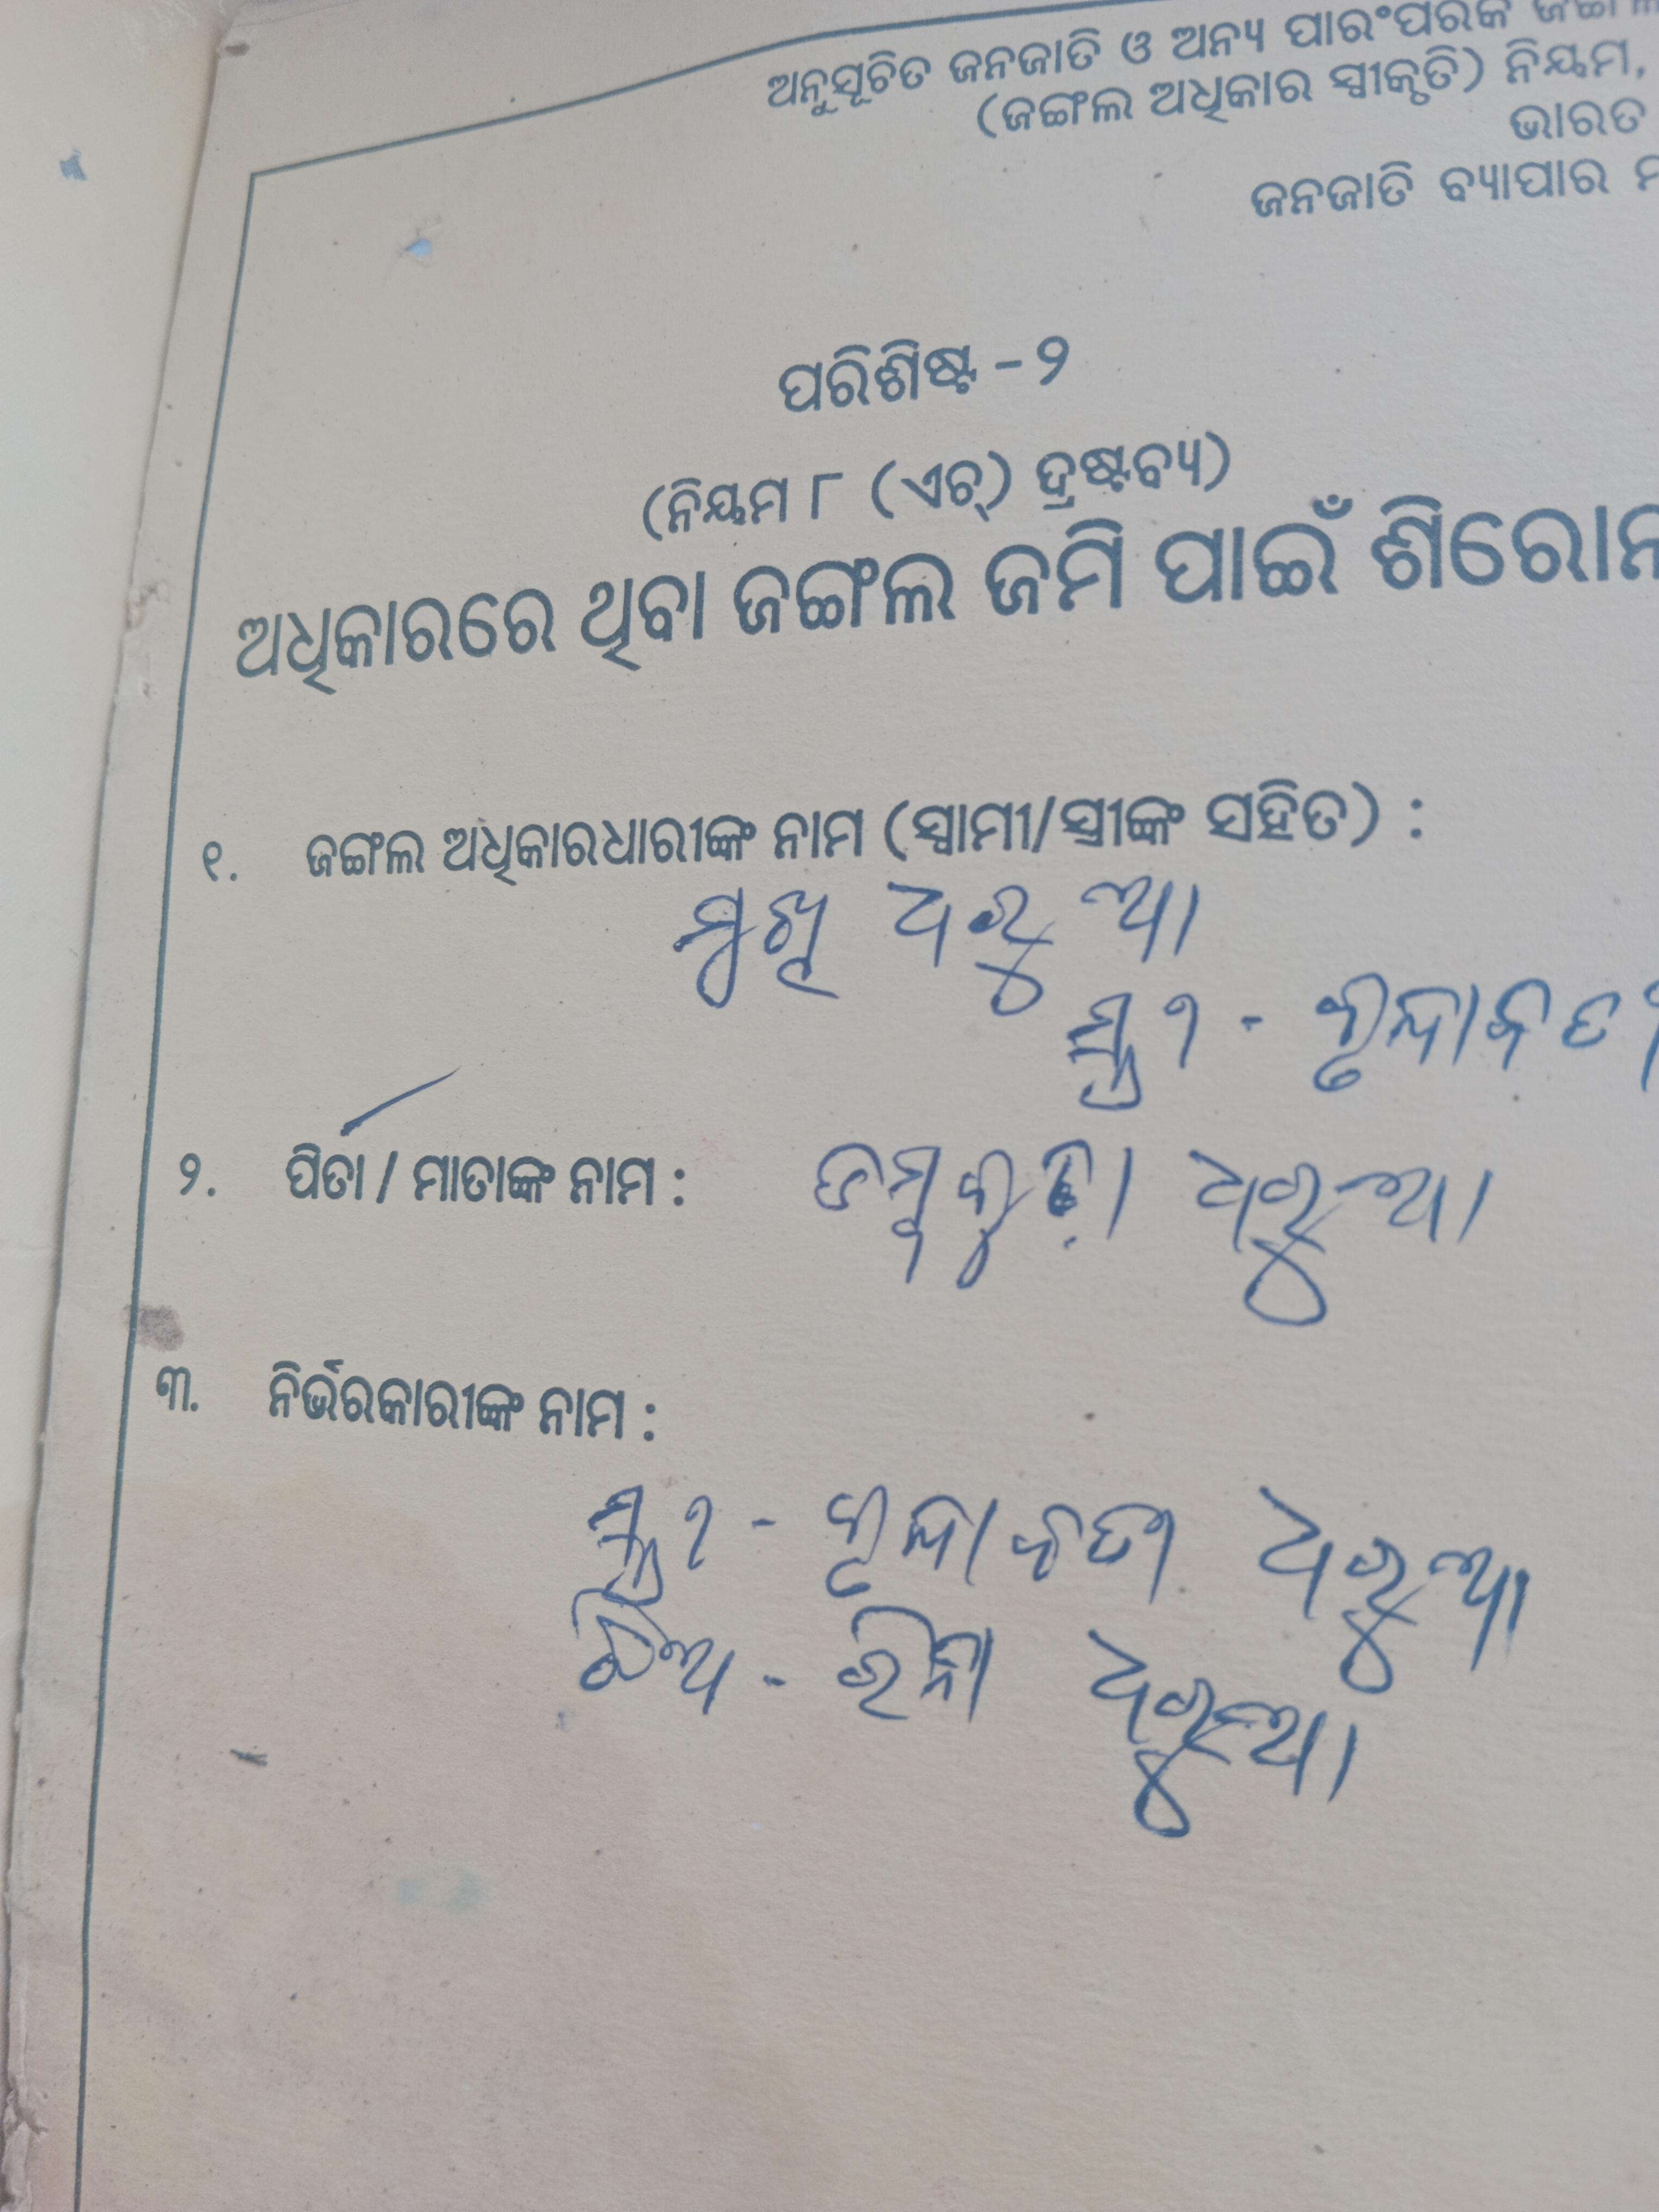 ଅନୁସୂଚିତ ଜନଜାତି ଓ ଅନ୍ୟ ପାରଂପରିକ
(ଜଙ୍ଗଲ ଅଧିକାର ସ୍ୱୀକୃତି) ନିୟମ,
ଭାରତ
ଜନଜାତି ବ୍ୟାପାର
ପରିଶିଷ୍ଟ - ୨
(ନିୟମ ୮ (ଏଚ୍) ଦ୍ରଷ୍ଟବ୍ୟ)
ଅଧିକାରରେ ଥିବା ଜଙ୍ଗଲ ଜମି ପାଇଁ
୧. ଜଙ୍ଗଲ ଅଧିକାରଧାରୀଙ୍କ ନାମ (ସ୍ୱାମୀ/ସ୍ତ୍ରୀଙ୍କ ସହିତ) :
ଧରୁଆ
ସ୍ତ୍ରୀ -
୨. ପିତା / ମାତାଙ୍କ ନାମ : ଧରୁଆ
୩. ନିର୍ଭରକାରୀଙ୍କ ନାମ :
ସ୍ତ୍ରୀ - ବୃନ୍ଦାବତୀ ଧରୁଆ
ଝିଅ - ରିନା ଧରୁଆ